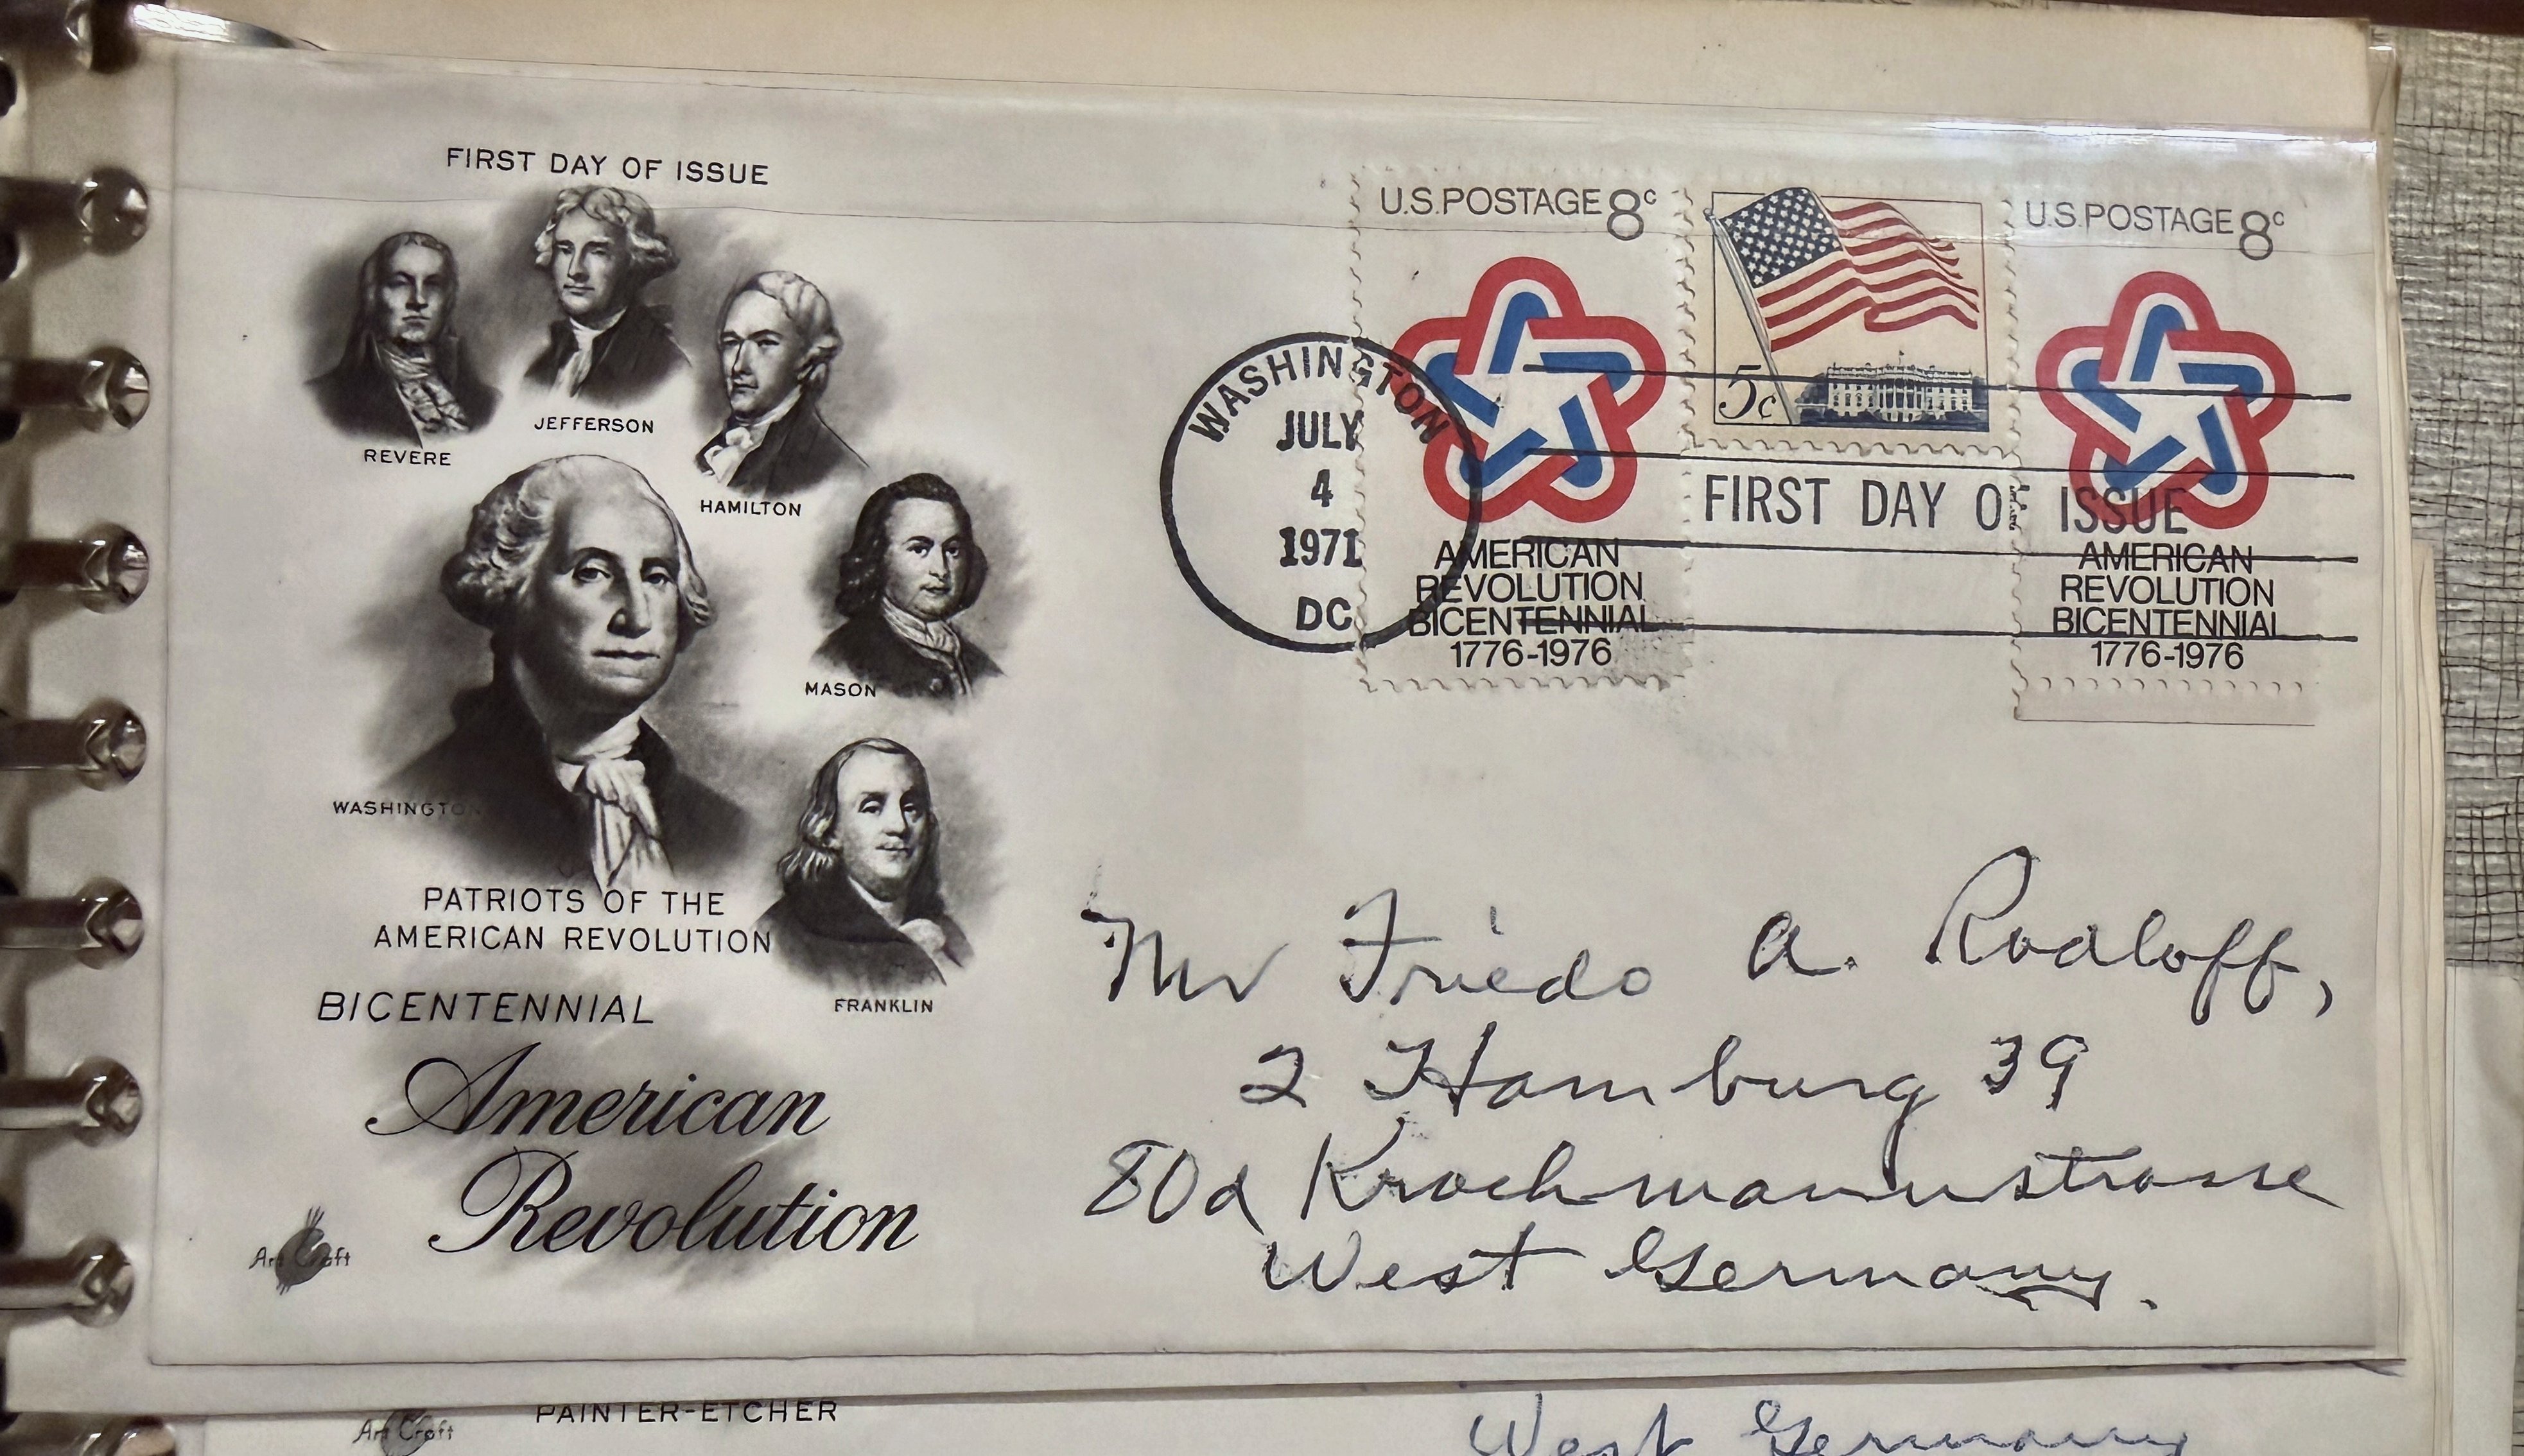 FIRST DAY OF ISSUE
REVERE
JEFFERSON
HAMILTON
MASON
WASHINGTON
FRANKLIN
PATRIOTS OF THE
AMERICAN REVOLUTION
BICENTENNIAL
American
Revolution
Art Craft
U.S. POSTAGE 8c
AMERICAN
REVOLUTION
BICENTENNIAL
1776-1976
5c
U.S. POSTAGE 8c
AMERICAN
REVOLUTION
BICENTENNIAL
1776-1976
WASHINGTON
JULY
4
1971
DC
FIRST DAY OF ISSUE
Mr Friedo A. Rodloff,
2 Hamburg 39
80a Krochmannstrasse
West Germany.
PAINTER-ETCHER
Art Craft
West Germany